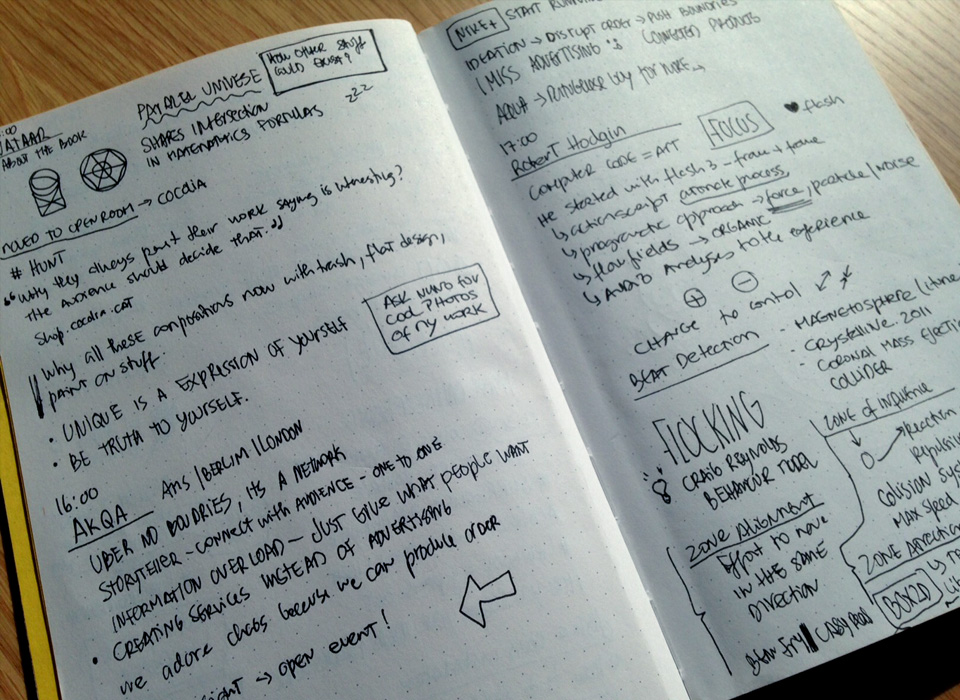 :00
ABOUT THE BOOK
PARALEL UNIVESE
HOW OTHER STUFF
COULD EXISA?
SHARES INTERSECTION
IN MATHEMATICS FORMULAS
zzz
MOVED TO OPEN ROOM → COCOLIA
# HUNT
“ Why they always point their work saying is interesting?
the AUDIENCE should decide that. ”
shop.cocolia.cat
Why all these compositions now with trash, flat design,
paint on stuff.
ASK NUNO FOR
COOL PHOTOS
OF MY WORK
• UNIQUE IS A EXPRESSION OF YOURSELF
• BE TRUTH TO YOURSELF.
16:00
AKQA
Ams | BERLIM | LONDON
UBER NO BOUDRIES, ITS A NETWORK
STORYTELLER - CONNECT WITH AUDIENCE - ONE TO ONE
INFORMATION OVERLOAD — JUST GIVE WHAT PEOPLE WANT
• CREATING SERVICES INSTEAD OF ADVERTYSING
we adore chaos because we can produce order
→ open event!
NIKE+ START RUNNING
IDEATION → DISRUPT ORDER → PUSH BOUNDARIES
(MISS ADVERTISING :) CONNECTED PRODUCTS
AKQA →
17:00
Robert Hodgin
FOCUS
♥ flash
COMPUTER CODE = ART
He started with flash 3 - frame + frame
↳ actionscript aromatic process
↳ programatic approach → force, particle/noise
↳ flow fields → ORGANIC
↳ AUDIO Analyses to the experience
⊕ ⊖
CHARGE to control
BEAT Detection
- MAGNETOSPHERE (itune
- Crystelline. 2011
- CORONAL MASS EJECTION
COLLIDER
FLOCKING
CRAIG REYNOLDS
BEHAVIOR MODEL
ZONE Alignment
Effort to move
IN THE SAME
DIRECTION
ZONE OF INFLUENCE
REACTION
Repulsion
Colision syst
Max speed
ZONE ATTRACTION
BOX2D
BEN FRY | CASEY REAS